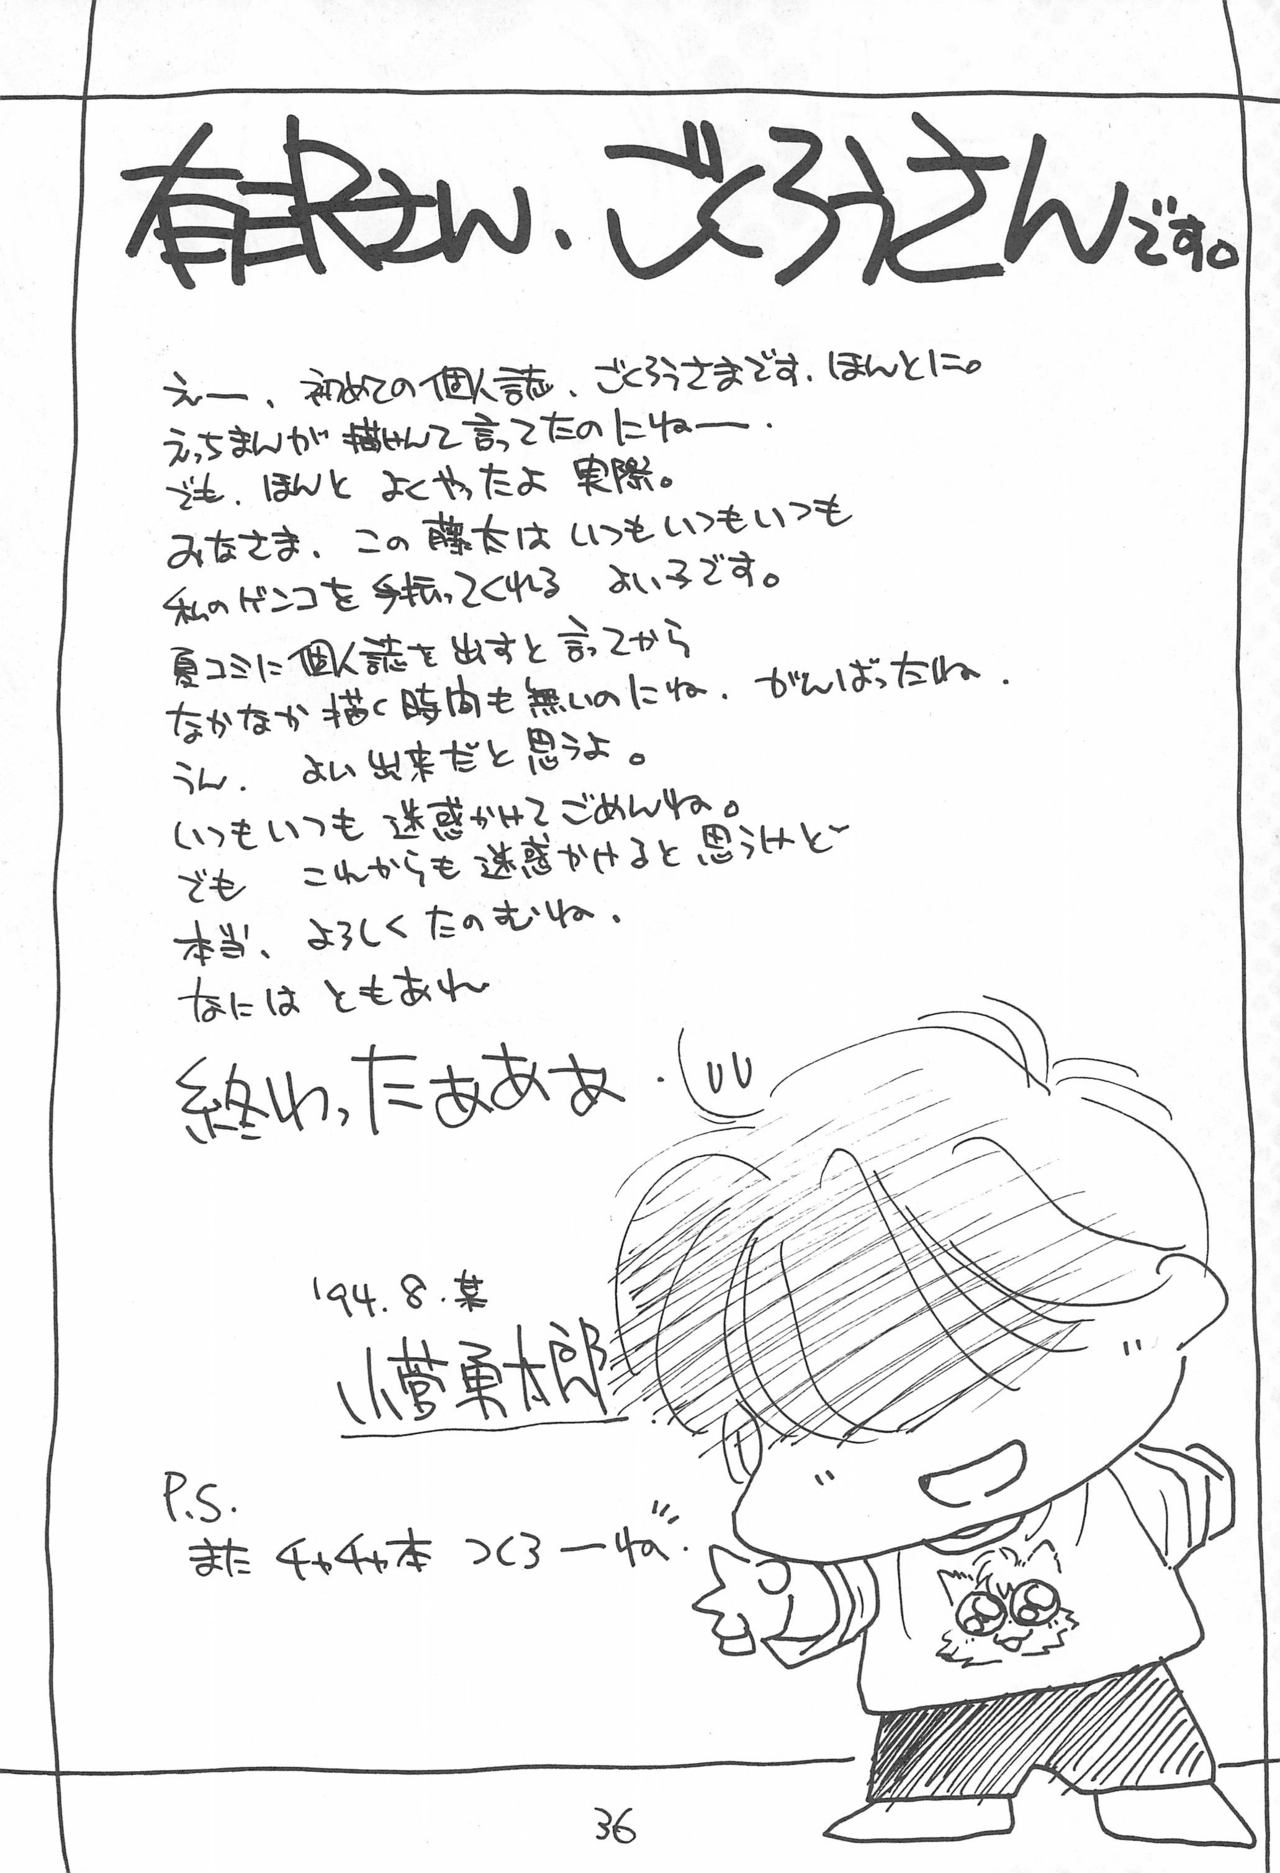 有沢さん、ごくろうさんです。
えー、初めての個人誌、ごくろうさまです、ほんとに。
えっちまんが描けんて言ってたのにねー、
でも、ほんと よくやったよ 実際。
みなさま、この藤太はいつもいつもいつも
私のゲンコを手伝ってくれる よい子です。
夏コミに個人誌を出すと言ってから
なかなか描く時間も無いのにね、がんばったね、
うん、よい出来だと思うよ。
いつもいつも迷惑かけてごめんね。
でも これからも迷惑かけると思うけど
本当、よろしくたのむね、
なにはともあれ
終わったぁあぁ、
'94.8.某
小菅勇太郎
P.S.
また チャチャ本 つくろーね、
36